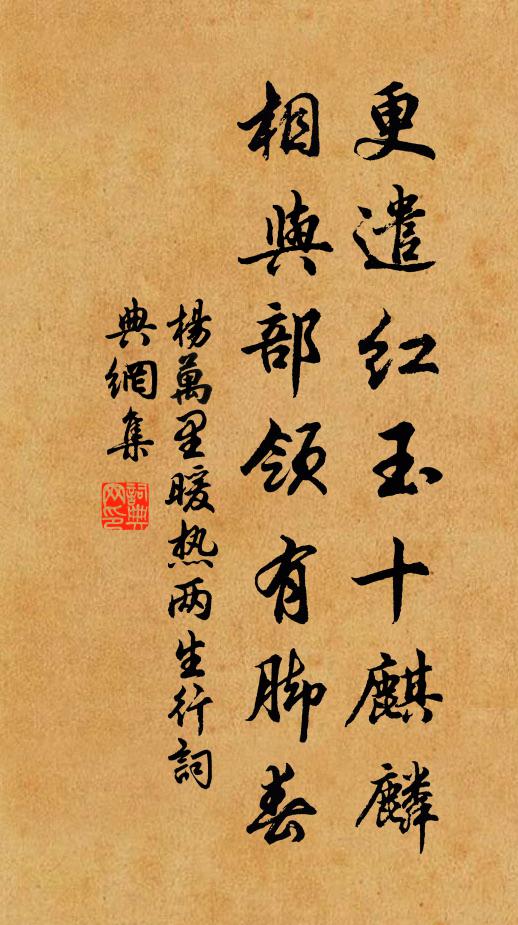 更遣红玉十麒麟
相與部领有脚春
楊萬里暖热两生行詞
典網集
詞典
网印